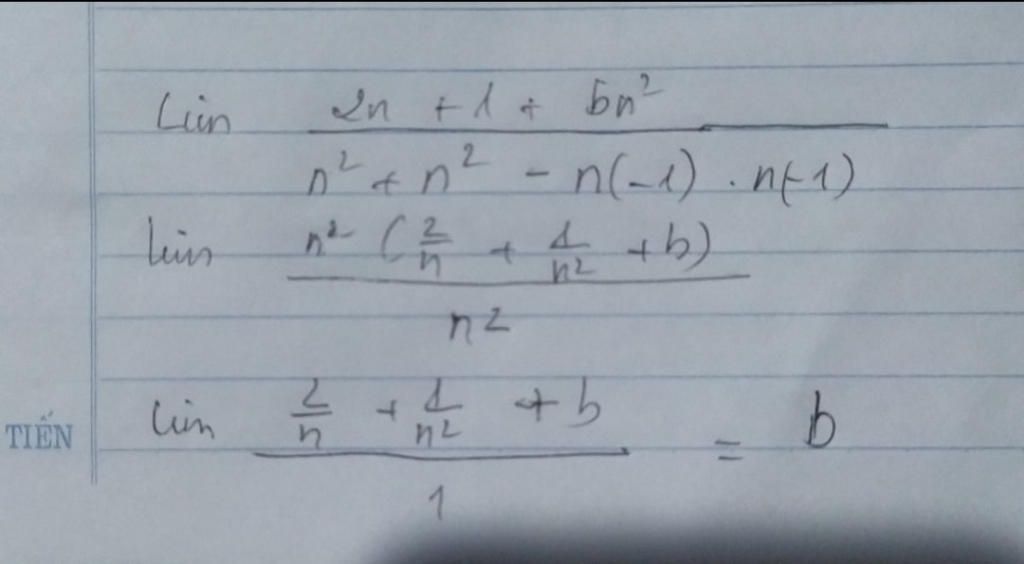 Lim (2n + 1 + bn²) / (n² + n² - n(-1) . n(-1))
lim (n² (2/n + 1/n² + b)) / n²
TIẾN
lim (2/n + 1/n² + b) / 1 = b